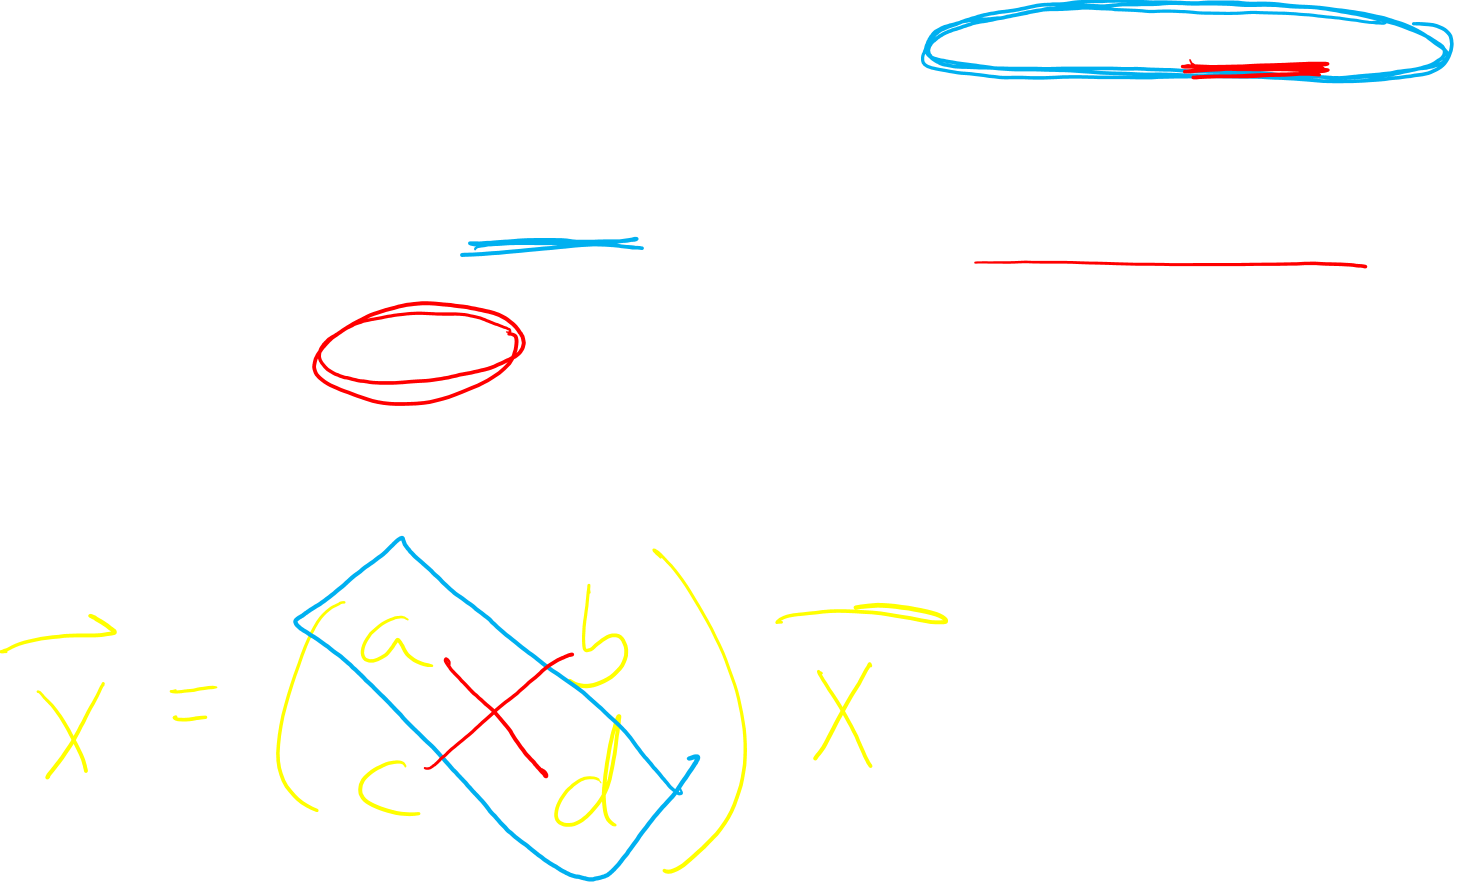 x⃗ = ( a b
c d ) x⃗